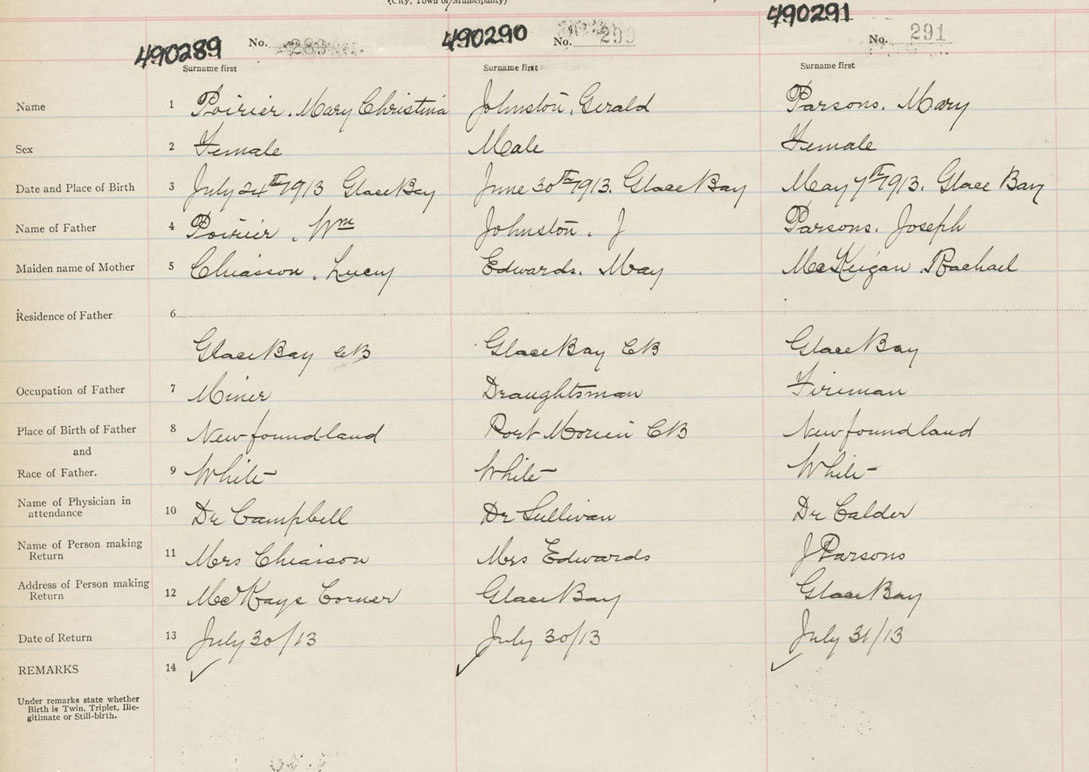 (City, Town or Municipality)
490289 No. 289 490290 No. 290 490291 No. 291
Surname first Surname first Surname first
Name 1 Poirier, Mary Christina Johnston, Gerald Parsons, Mary
Sex 2 Female Male Female
Date and Place of Birth 3 July 1913 Glace Bay June 30th 1913. Glace Bay May 7th 1913. Glace Bay
Name of Father 4 Poirier, Wm Johnston, J Parsons, Joseph
Maiden name of Mother 5 Chiasson, Lucy Edwards, May McKeigan, Rachael
Residence of Father 6
Glace Bay CB Glace Bay CB Glace Bay
Occupation of Father 7 Miner Draughtsman Fireman
Place of Birth of Father 8 Newfoundland Port Morien CB Newfoundland
and
Race of Father. 9 White White White
Name of Physician in attendance 10 Dr Campbell Dr Sullivan Dr Calder
Name of Person making Return 11 Mrs Chiaison Mrs Edwards J Parsons
Address of Person making Return 12 McKays Corner Glace Bay Glace Bay
Date of Return 13 July 30/13 July 30/13 July 31/13
REMARKS 14 ✓ ✓ ✓
Under remarks state whether
Birth is Twin, Triplet, Ille-
gitimate or Still-birth.